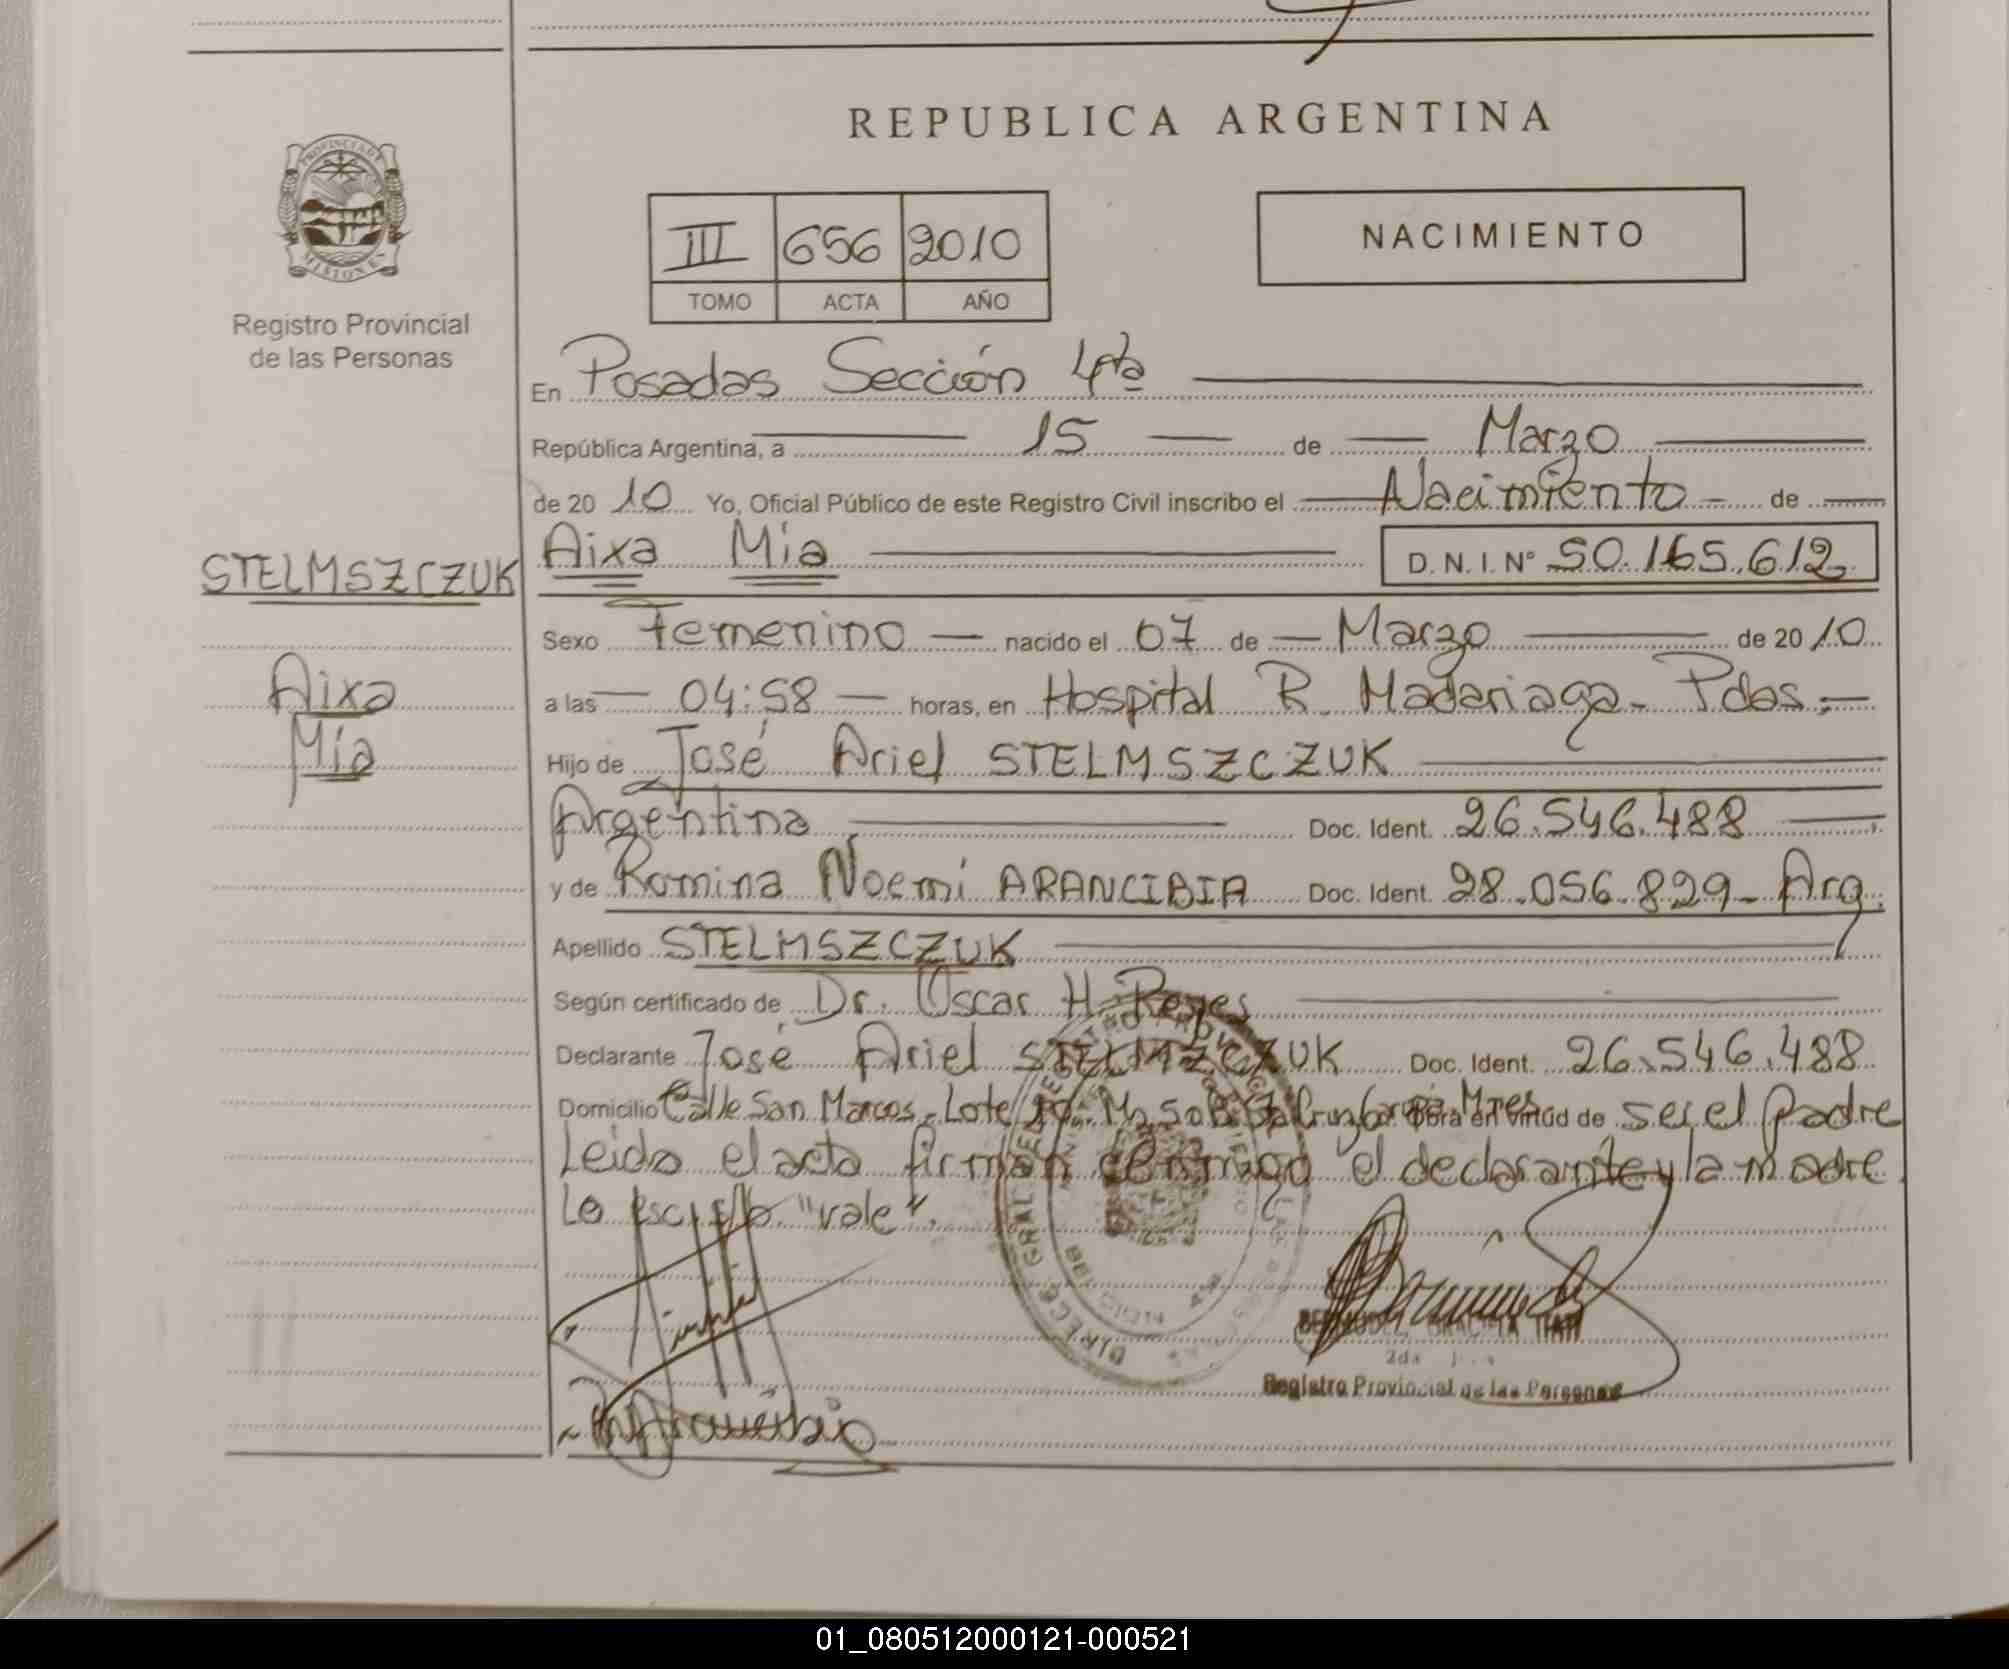 REPUBLICA ARGENTINA
PROVINCIA DE
MISIONES
Registro Provincial
de las Personas
III 656 2010
TOMO ACTA AÑO
NACIMIENTO
En Posadas Sección 4ta
República Argentina, a 15 de Marzo
de 20 10 Yo, Oficial Público de este Registro Civil inscribo el Nacimiento de
STELMSZCZUK
Aixa Mía
Aixa Mía D. N. I. Nº 50.165.612
Sexo Femenino nacido el 07 de Marzo de 20 10
a las 04:58 horas, en Hospital R. Madariaga - Pdas.-
Hijo de José Ariel STELMSZCZUK
Argentina Doc. Ident. 26.546.488
y de Romina Noemí ARANCIBIA Doc. Ident. 28.056.829- Arg.
Apellido STELMSZCZUK
Según certificado de Dr. Oscar H. Reyes
Declarante José Ariel STELMZCZUK Doc. Ident. 26.546.488
Domicilio Calle San Marcos - Lote Obra en virtud de ser el padre
Leida el acta firman conmigo el declarante y la madre
Lo escrito "vale".
Registro Provincial de las Personas
01_080512000121-000521